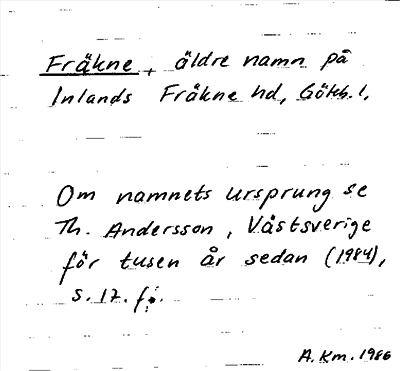 Fräkne, äldre namn på
Inlands Fräkne hd, Göteb. l.
Om namnets ursprung se
Th. Andersson, Västsverige
för tusen år sedan (1984),
s. 17. f.
A. Km. 1986